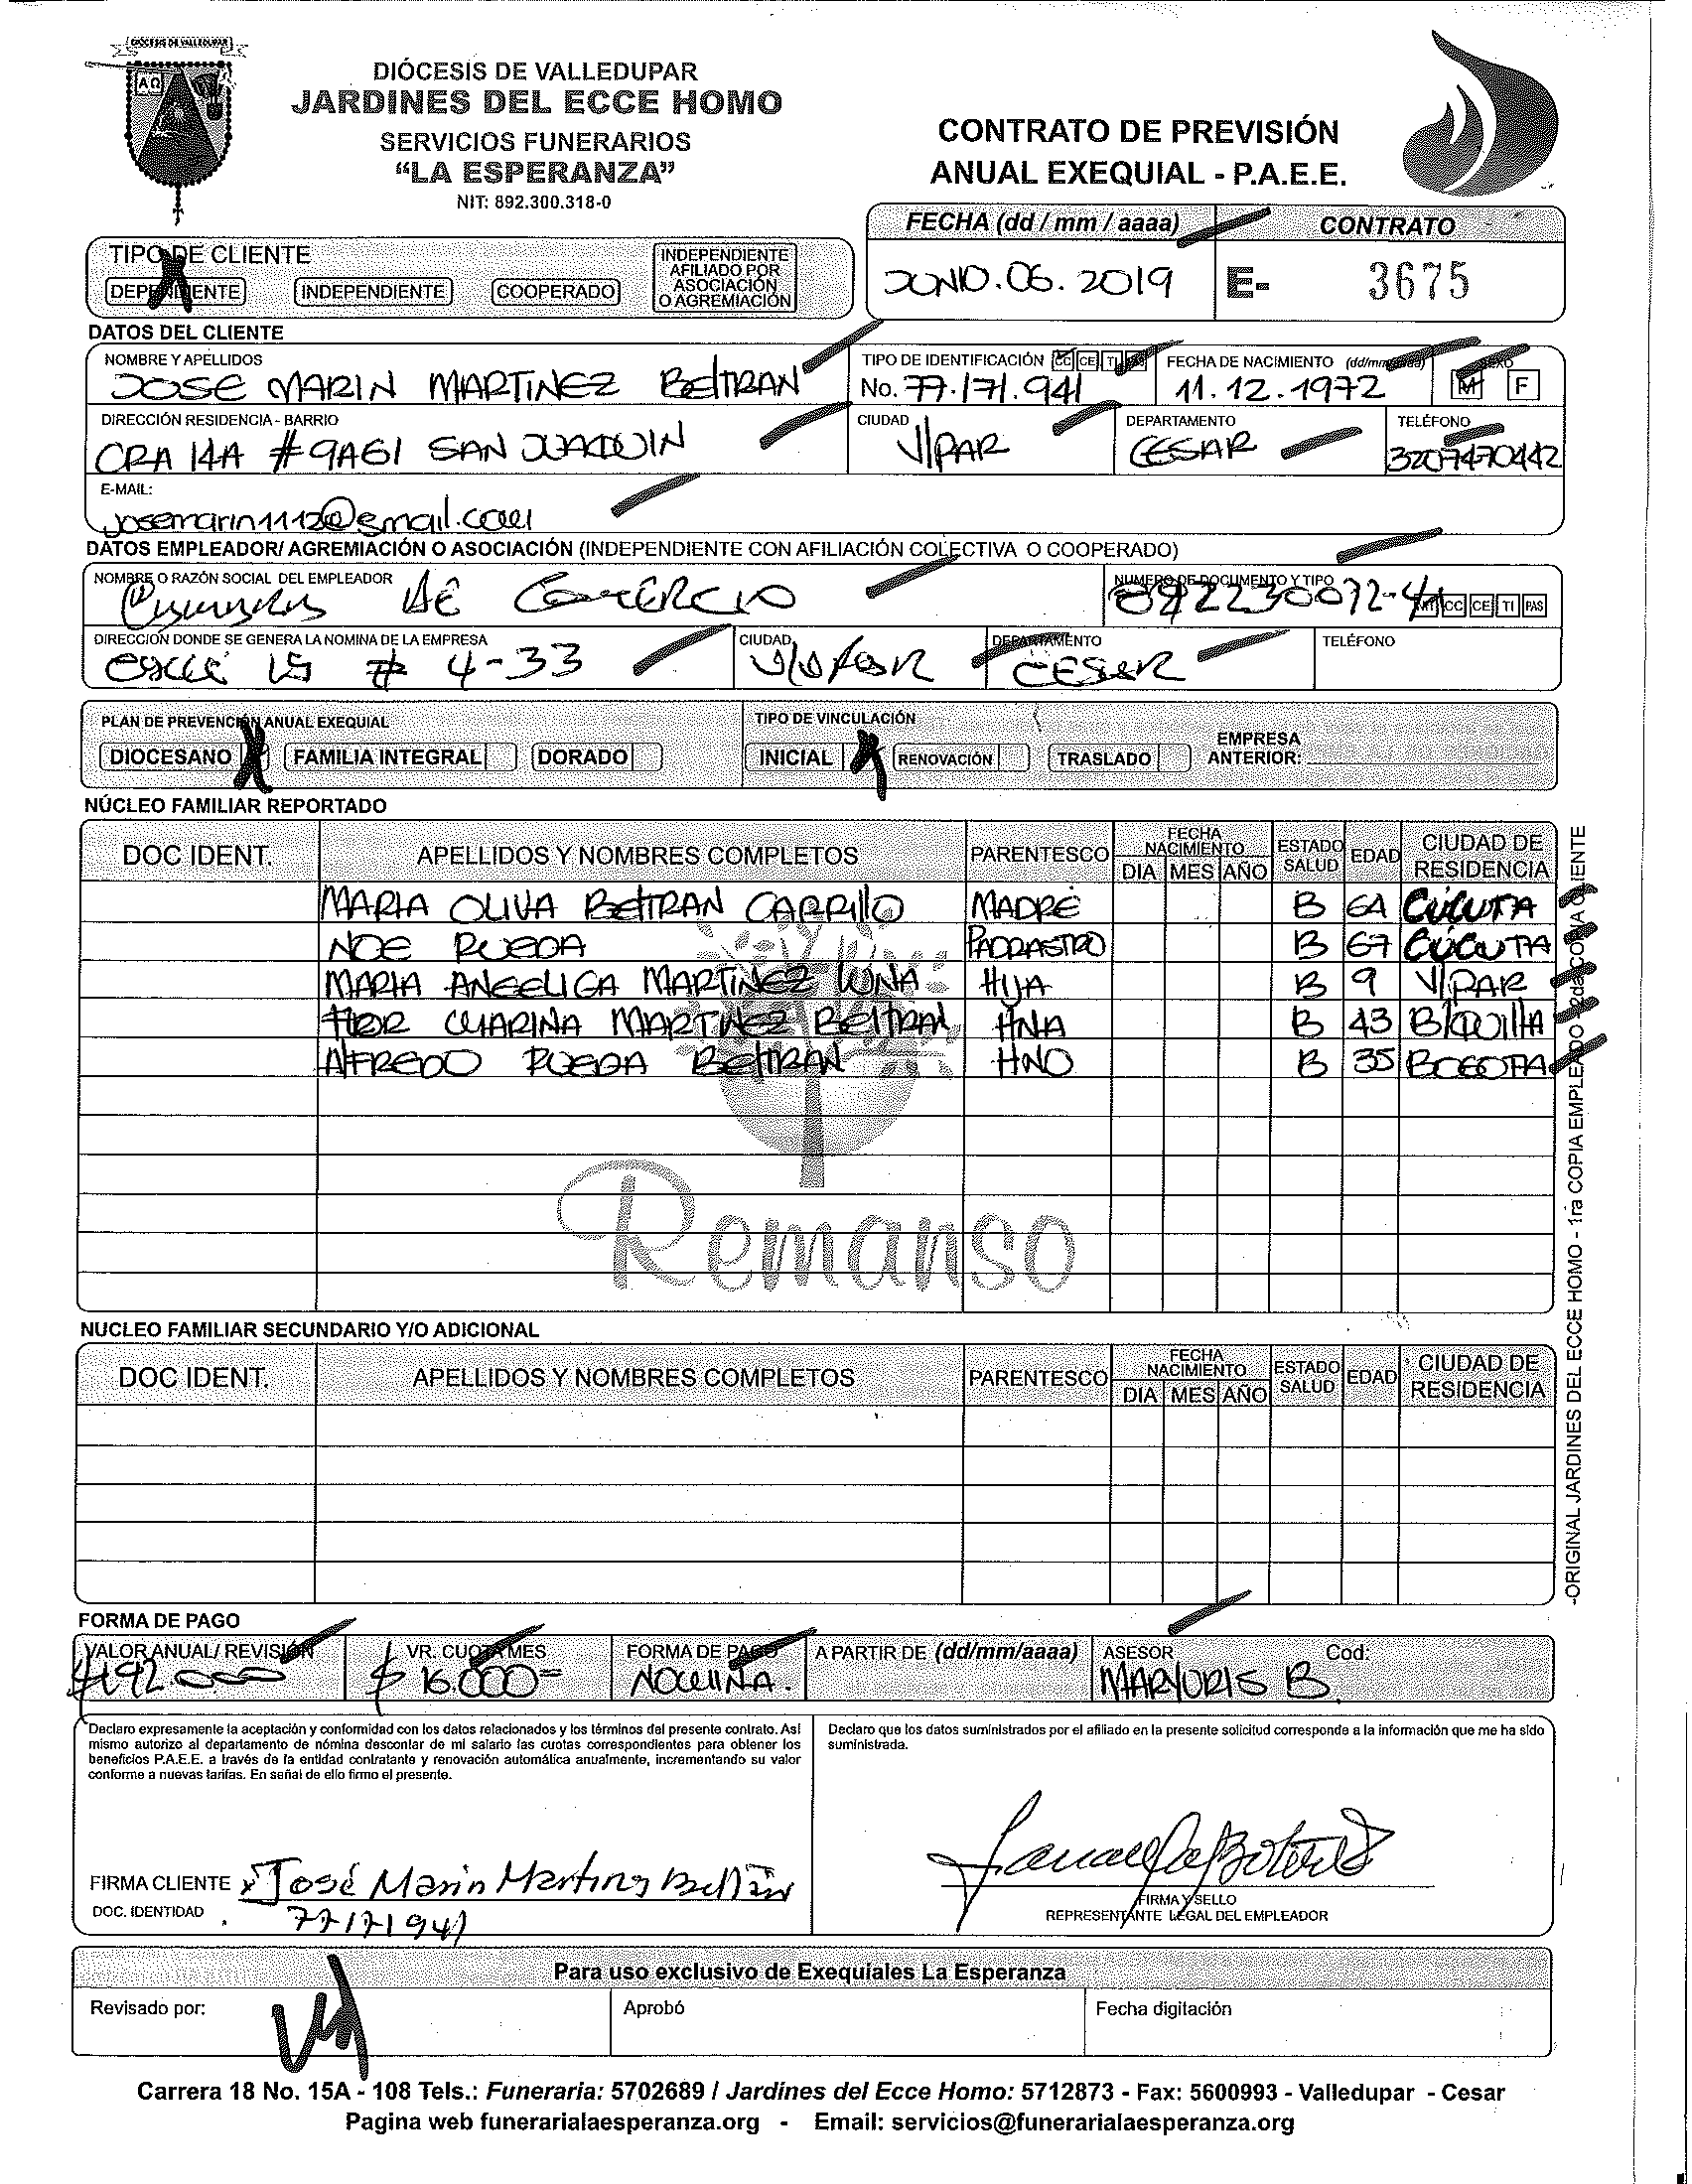 DIÓCESIS DE VALLEDUPAR
DIÓCESIS DE VALLEDUPAR
JARDINES DEL ECCE HOMO
SERVICIOS FUNERARIOS
“LA ESPERANZA”
NIT: 892.300.318-0
CONTRATO DE PREVISIÓN
ANUAL EXEQUIAL - P.A.E.E.
FECHA (dd / mm / aaaa) CONTRATO
JUNIO.06.2019 E- 3675
TIPO DE CLIENTE
DEPENDIENTE INDEPENDIENTE COOPERADO INDEPENDIENTE AFILIADO POR ASOCIACIÓN O AGREMIACIÓN
DATOS DEL CLIENTE
NOMBRE Y APELLIDOS TIPO DE IDENTIFICACIÓN CC CE TI PAS FECHA DE NACIMIENTO (dd/mm/aaaa) SEXO
JOSE MARIN MARTINEZ BELTRAN No. 77.171.941 11.12.1972 M F
DIRECCIÓN RESIDENCIA - BARRIO CIUDAD DEPARTAMENTO TELÉFONO
CRA 14A # 9A61 SAN JUAQUIN V/PAR CESAR 3207470442
E-MAIL:
josemarin1112@gmail.com
DATOS EMPLEADOR/ AGREMIACIÓN O ASOCIACIÓN (INDEPENDIENTE CON AFILIACIÓN COLECTIVA O COOPERADO)
NOMBRE O RAZÓN SOCIAL DEL EMPLEADOR NUMERO DE DOCUMENTO Y TIPO
DE COMERCIO 892230072-4 NIT CC CE TI PAS
DIRECCIÓN DONDE SE GENERA LA NOMINA DE LA EMPRESA CIUDAD DEPARTAMENTO TELÉFONO
Calle 15 # 4-33 V/PAR CESAR
PLAN DE PREVENCIÓN ANUAL EXEQUIAL TIPO DE VINCULACIÓN
DIOCESANO FAMILIA INTEGRAL DORADO INICIAL RENOVACIÓN TRASLADO EMPRESA ANTERIOR:
NÚCLEO FAMILIAR REPORTADO
DOC IDENT. APELLIDOS Y NOMBRES COMPLETOS PARENTESCO FECHA NACIMIENTO DIA MES AÑO ESTADO SALUD EDAD CIUDAD DE RESIDENCIA
MARIA OLIVA BELTRAN CARRILLO MADRE B 64 CÚCUTA
NOE RUEDA PADRASTRO B 67 CÚCUTA
MARIA ANGELICA MARTINEZ LUNA HIJA B 9 V/PAR
FLOR MARINA MARTINEZ BELTRAN HNA B 43 B/QUILLA
ALFREDO RUEDA BELTRAN HNO B 35 BOGOTA
Remanso
NUCLEO FAMILIAR SECUNDARIO Y/O ADICIONAL
DOC IDENT. APELLIDOS Y NOMBRES COMPLETOS PARENTESCO FECHA NACIMIENTO DIA MES AÑO ESTADO SALUD EDAD CIUDAD DE RESIDENCIA
-ORIGINAL JARDINES DEL ECCE HOMO - 1ra COPIA EMPLEADO - 2da COPIA CLIENTE
FORMA DE PAGO
VALOR ANUAL/ REVISIÓN VR. CUOTA MES FORMA DE PAGO A PARTIR DE (dd/mm/aaaa) ASESOR Cod:
$192.000 $ 16.000= NOMINA. MARYURIS B.
Declaro expresamente la aceptación y conformidad con los datos relacionados y los términos del presente contrato. Así
mismo autorizo al departamento de nómina descontar de mi salario las cuotas correspondientes para obtener los
beneficios P.A.E.E. a través de la entidad contratante y renovación automática anualmente, incrementando su valor
conforme a nuevas tarifas. En señal de ello firmo el presente.
Declaro que los datos suministrados por el afiliado en la presente solicitud corresponde a la información que me ha sido
suministrada.
FIRMA CLIENTE x José Marin Martinez Beltrán
DOC. IDENTIDAD 77171941
FIRMA Y SELLO
REPRESENTANTE LEGAL DEL EMPLEADOR
Para uso exclusivo de Exequiales La Esperanza
Revisado por: Aprobó Fecha digitación
Carrera 18 No. 15A - 108 Tels.: Funeraria: 5702689 / Jardines del Ecce Homo: 5712873 - Fax: 5600993 - Valledupar - Cesar
Pagina web funerarialaesperanza.org - Email: servicios@funerarialaesperanza.org